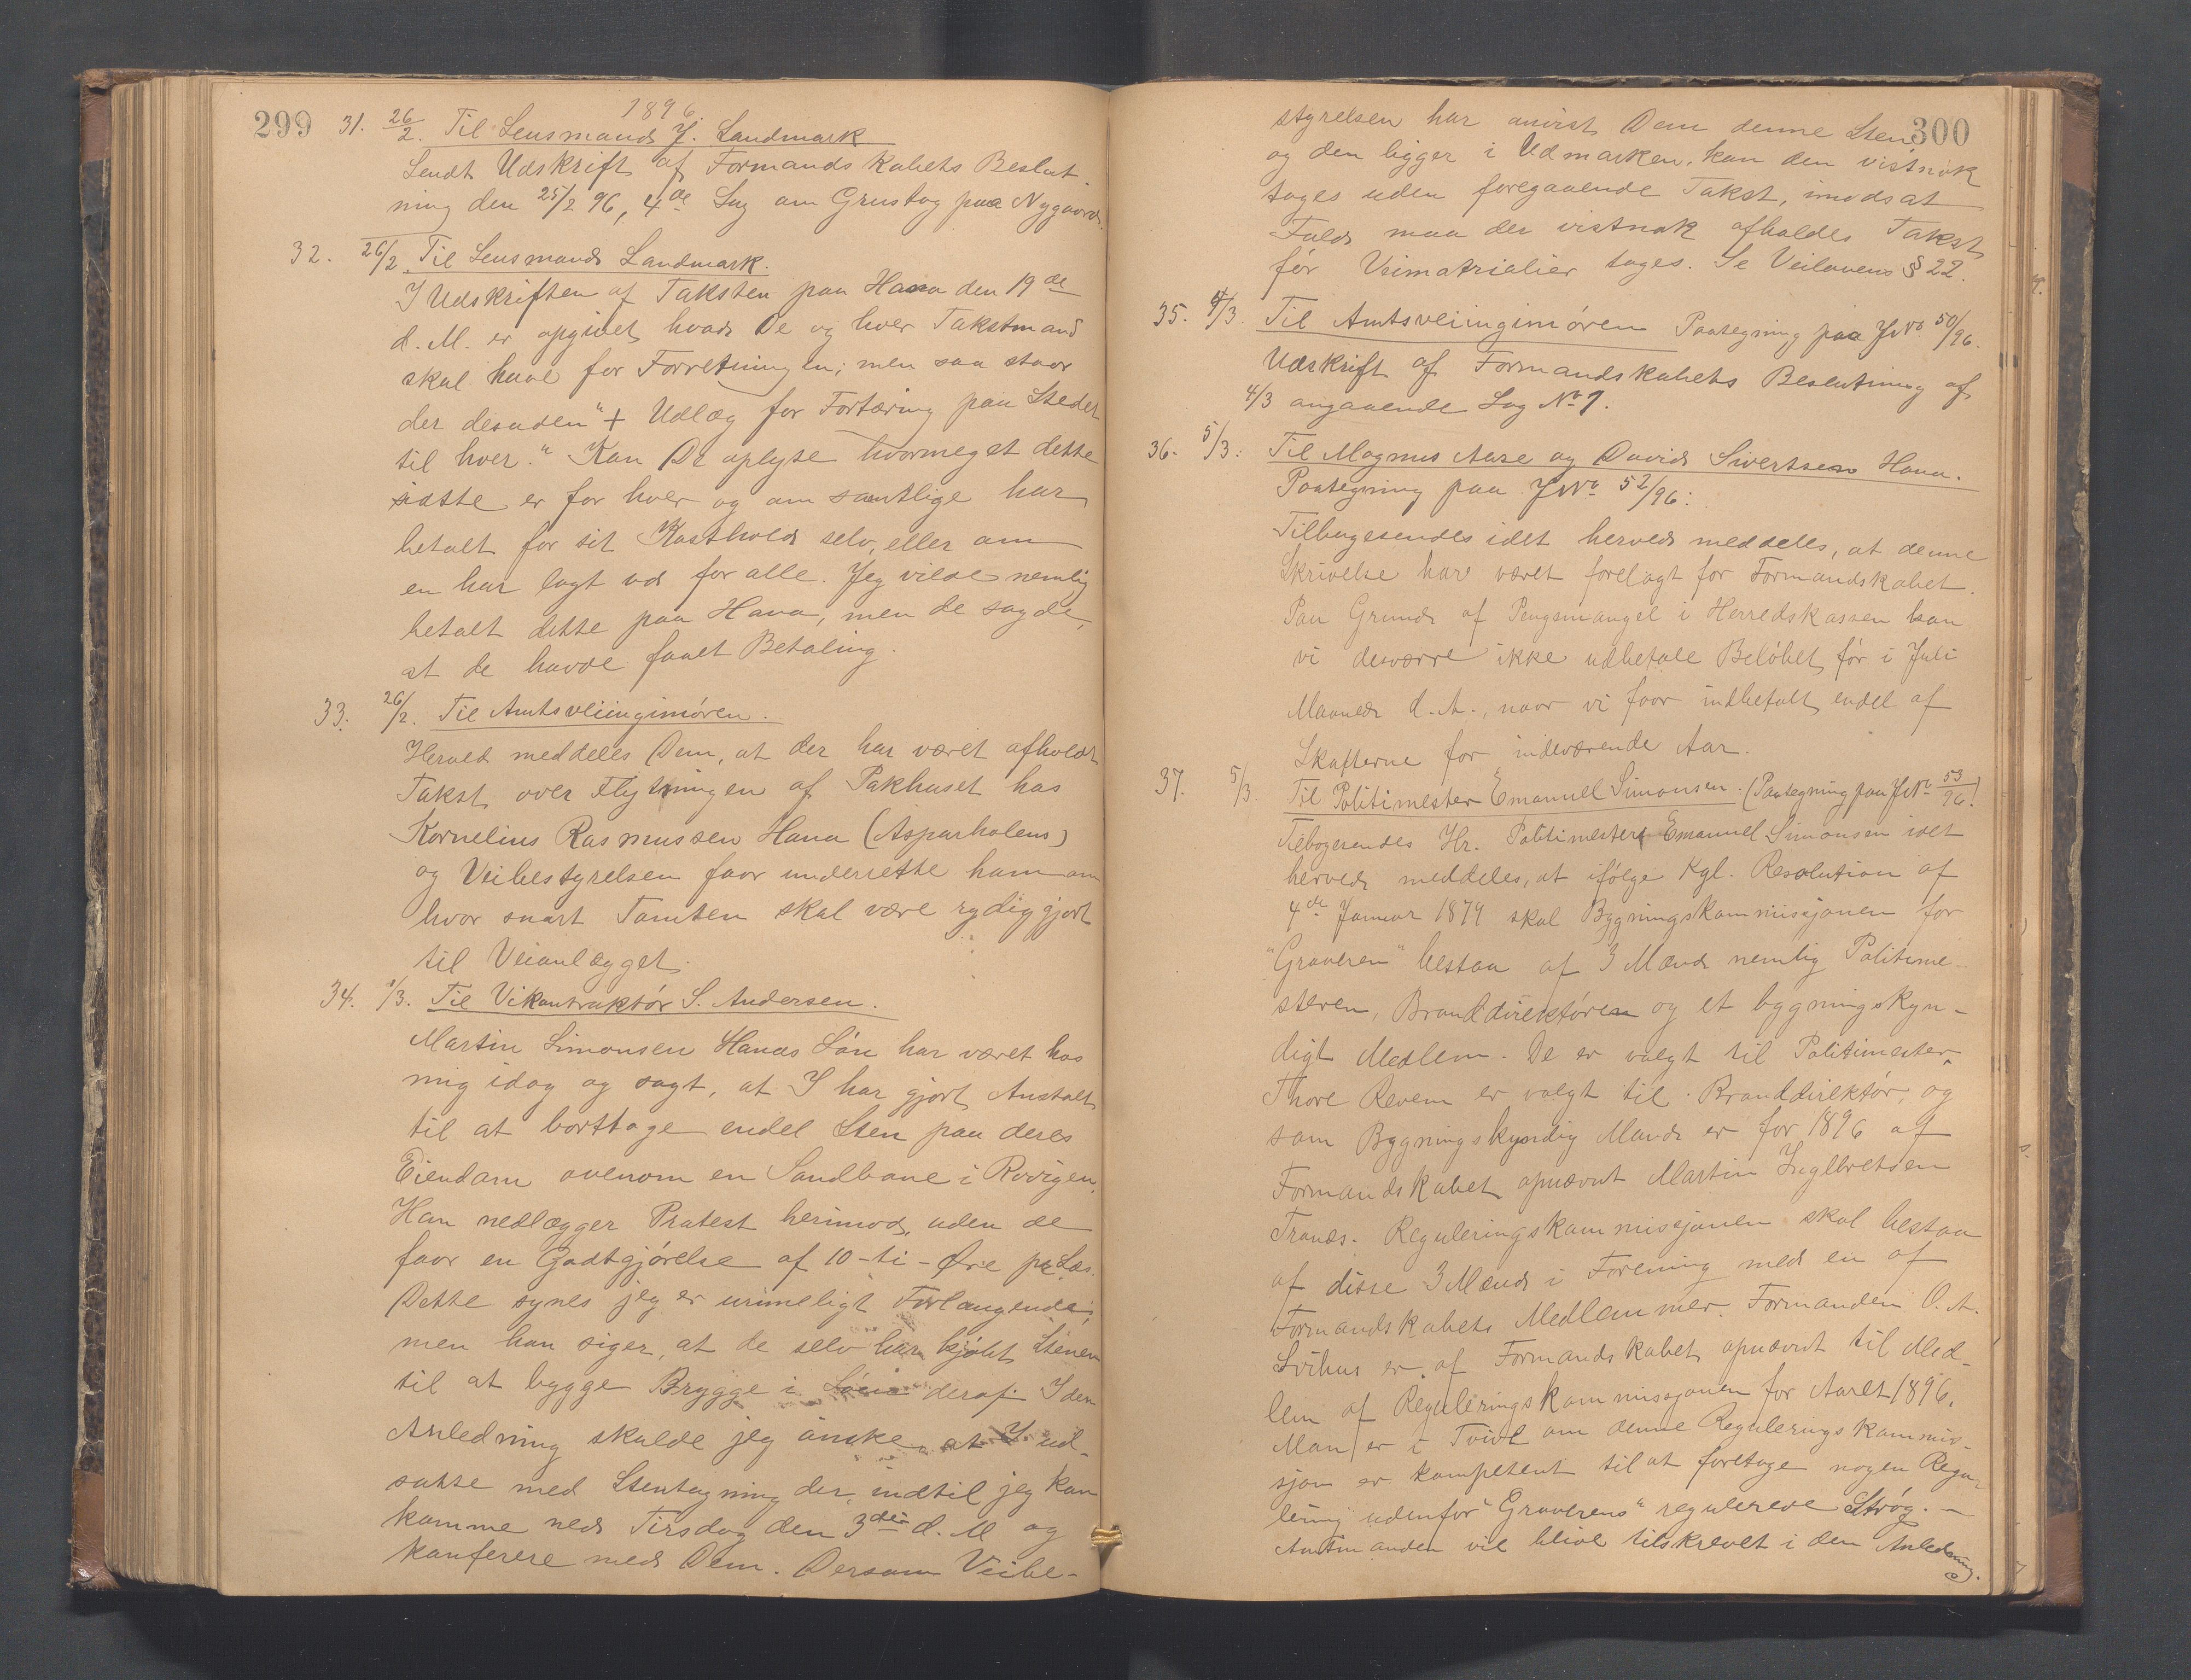 299
1896.
31. 26/2. Til Lensmand J. Landmark
Sendt Udskrift af Formandskabets Beslut-
ning den 25/2 96, 4de Sag om Grustag paa Nygaard.
32. 26/2 Til Lensmand Landmark.
I Udskriften af Taksten paa Hana den 19de
d. M. er opgivet hvad De og hver Takstmand
skal have for Forretningen; men saa staar
der desuden "+ Udlæg for Fortæring paa Stedet
til hver." Kan De oplyse hvormeget dette
sidste er for hver og om samtlige har
betalt for sit Kosthold selv, eller om
en har lagt ud for alle. Jeg vilde nemlig
betalt dette paa Hana, men de sagde,
at de havde faaet Betaling.
33. 26/2. Til Amtsveiingiøren.
Herved meddeles Dem, at der har været afholdt
Takst over Flytningen af Pakhuset hos
Kornelius Rasmussen Hana (Asparholens)
og Veibestyrelsen faar underrette ham om
hvor snart Tomten skal være rydiggjort
til Veianlægget.
34. 1/3. Til Vikontraktør S. Andersen.
Martin Simonsen Hanas Søn har været hos
mig idag og sagt, at I har gjort Anstalt
til at borttage endel Sten paa deres
Eiendom ovenom en Sandbane i Rovigen.
Han nedlægger Protest herimod, uden de
faar en Godtgjørelse af 10-ti-Øre pr Læs.
Dette synes jeg er urimeligt Forlangende,
men han siger, at de selv har kjøbt Stenen
til at bygge Brygge i deraf. I den
Anledning skulde jeg ønske, at I ud-
satte med Stentagning der, indtil jeg kan
komme ned Tirsdag den 3die d. M og
konferere med Dem. Dersom Veibe-
300
styrelsen har anvist Dem denne Sten
og den ligger i Udmarken, kan den vistnok
tages uden foregaaende Takst, imodsat
Fald maa der vistnok afholdes Takst
før Veimatrialier tages. Se Veilovens § 22.
35. 4/3. Til Amtsveiingiøren Paategning paa JNo. 50/96.
Udskrift af Formandskabets Beslutning af
4/3 angaaende Sag No 1.
36. 5/3: Til Magnus Aase og David Sivertsen Hana.
Paategning paa JNo 52/96:
Tilbagesendes idet herved meddeles, at denne
Skrivelse har været forelagt for Formandskabet.
Paa Grund af Pengemangel i Herredskassen kan
vi desværre ikke udbetale Beløbet før i Juli
Maaned d. A., naar vi faar indbetalt endel af
Skatterne for indeværende Aar.
37. 5/3. Til Politimester Emanuel Simonsen. (Paategning paa JNo 53/96.)
Tilbagesendes Hr. Politimester Emanuel Simonsen idet
herved meddeles, at ifølge Kgl. Resolution af
4de Januar 1879 skal Bygningskommissjonen for
"Graveren" bestaa af 3 Mænd nemlig Politime-
steren, Branddirektøren og et bygningskyn-
digt Medlem. De er valgt til Politimester,
Thore Revem er valgt til Branddirektør, og
som Bygningskyndig Mand er for 1896 af
Formandskabet opnævnt Martin Ingebretsen
Tronæs. Reguleringskommissjonen skal bestaa
af disse 3 Mænd i Forening med en af
Formandskabets Medlemmer. Formanden O. A.
Svihus er af Formandskabet opnævnt til Med-
lem af Reguleringskommissjonen for Aaret 1896.
Man er i Tvivl om denne Regulerings kommis-
sjon er kompetent til at foretage nogen Regu-
lering udenfor "Graverens" regulerede Strøg. -
Amtmanden vil blive tilskrevet i den Anledning.